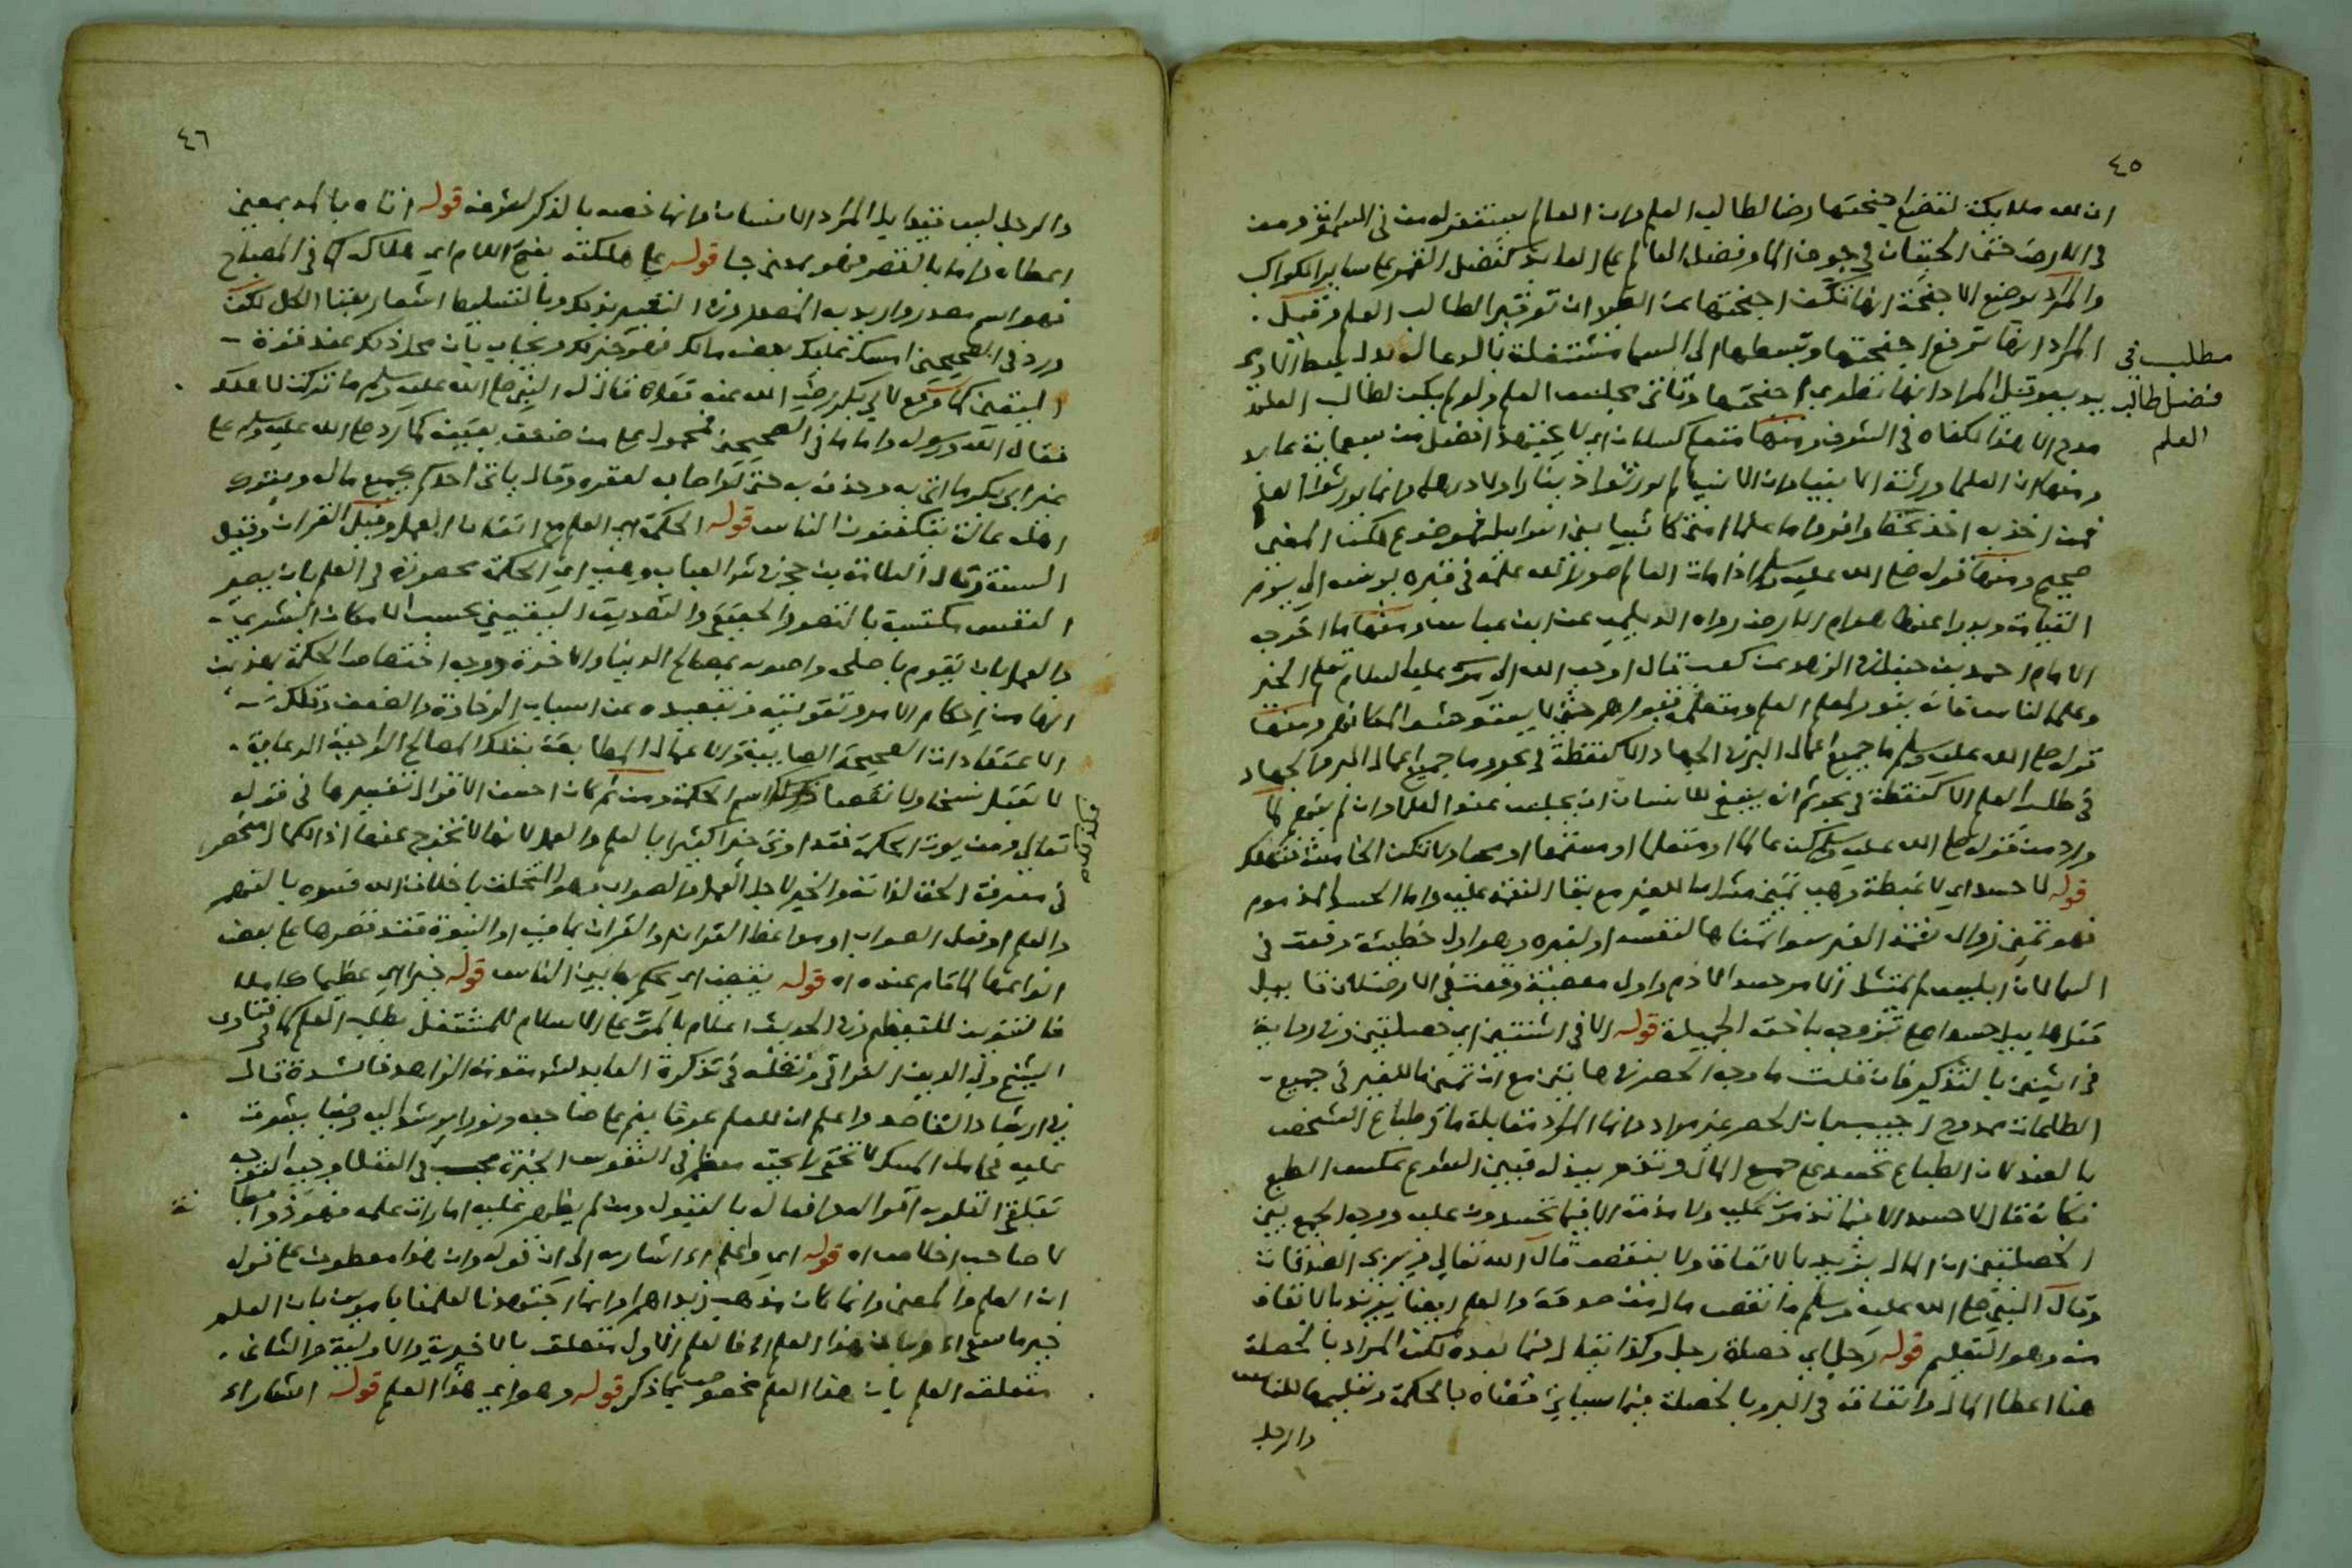 ٤٥
ان لله ملايكة لتضع اجنحتها رضا لطالب العلم وان العالم يستغفر له من في السموات ومن
في الارض حتى الحيتان في جوف الماء وفضل العالم على العابد كفضل القمر على ساير الكواكب
والمراد بوضع الاجنحة انها تكف اجنحتها عن الطيران توقيرا لطالب العلم وقيل
المراد انها ترفع اجنحتها وتبسطها الى السما مشتغلة بالدعا له بدل بسط الآدمي
يديه وقيل المراد انها تطوي اجنحتها وتأتي مجلس العلم ولو لم يكن لطالب العلم
مطلب في
فضل طالب
العلم
مدح الا هذا لكفاه في الشرف ومنها متعلم كسلان اي لا يجتهد افضل من سبعماية عابد
ومنها ان العلما ورثة الانبيا وان الانبيا لم يورثوا دينارا ولا درهما وانما يورثوا العلم
فمن اخذ به اخذ بحظ وافر واما علما امتي كانبيا بني اسرايل فموضوع لكن المعنى
صحيح ومنها قوله صلى الله عليه وسلم اذا مات العالم صور الله علمه في قبره يونسه الى يوم
القيامة ويدرا عنه هوام الارض رواه الديلمي عن ابن عباس ومنها ما اخرجه
الامام احمد بن حنبل في الزهد عن كعب قال اوحى الله الى موسى عليه السلام تعلم الخير
وعلمه الناس فاني منور لمعلم العلم ومتعلمه قبورهم حتى لا يستوحشوا لمكانهم ومنها
قوله صلى الله عليه وسلم ما جميع اعمال البر في الجهاد الا كنقطة في بحر وما جميع اعمال البر والجهاد
في طلب العلم الا كنقطة في بحر ثم انه ينبغي للانسان ان يجلس عند العلما وان لم يفهم لما
ورد من قوله صلى الله عليه وسلم كن عالما او متعلما او مستمعا او محبا ولا تكن الخامسة فتهلك
قوله لا حسد اي لا غبطة وهي تمني مثل ما للغير مع بقا النعمة عليه واما الحسد المذموم
فهو تمني زوال نعمة الغير سوا تمناها لنفسه او لغيره وهو اول خطيئة وقعت في
السما لان ابليس لم يمتثل الامر حسدا لآدم واول معصية وقعت في الارض لان قابيل
قتل هابيل حسدا على تزوجه باخته الجميلة قوله الا في اثنتين اي خصلتين وفي رواية
في اثنين بالتذكير فان قلت ما وجه الحصر في هاتين مع ان تمني ما للغير في جميع
الطاعات ممدوح اجيب بان الحصر غير مراد وانما المراد مقابلة ما في طباع الشخص
بالضد لان الطباع تحسد على جمع المال وتذم ببذله فبين الشرع عكس الطبع
فكانه قال لا حسد الا فيما تذمون عليه ولا مذمة الا فيما تحسدون عليه ووجه الجمع بين
الخصلتين ان المال يزيد بالانفاق ولا ينقص قال الله تعالى ويربي الصدقات
وقال النبي صلى الله عليه وسلم ما نقص مال من صدقة والعلم ايضا يزيد بالانفاق
منه وهو التعليم قوله رجل اي خصلة رجل وكذا يقال فيما بعده لكن المراد بالخصلة
هنا اعطا المال وانفاقه في البر وبالخصلة فيما سياتي قضاه بالحكمة وتعليمها للناس
والرجل
٤٦
والرجل ليس قيدا بل المراد الانسان وانما خصه بالذكر لشرفه قوله اتاه بالمد بمعنى
اعطاه واما بالقصر فهو بمعنى جا قوله على هلكته بفتح اللام اي هلاكه كما في المصباح
فهو اسم مصدر واريد به المصدر وفي التعبير بذلك وبالتسليط اشعار بفنا الكل لكن
ورد في الصحيحين امسك عليك بعض مالك فهو خير لك ويجاب بان محل ذلك عند قوة
اليقين كما وقع لابي بكر رضي الله عنه فقال له النبي صلى الله عليه وسلم ما تركت لاهلك
فقال الله ورسوله واما ما في الصحيحين فمحمول على من ضعف يقينه كما رد صلى الله عليه وسلم على
غير ابي بكر ما اتى به وحذفه به حتى لو اصابه لعقره وقال ياتي احدكم بجميع ماله ويترك
اهله عالة يتكففون الناس قوله الحكمة اي العلم مع اتقان العمل وقيل القران وقيل
السنة وقال العلامة بن حجر في شرح العباب وهي اي الحكمة محصورة في العلم بان يصير
النفس مكتسبة بالتصور الحقيقي والتصديق اليقيني بحسب الامكان البشري
والعمل بان يقوم باصلي واصوب بمصالح الدنيا والاخرة ووجه اختصاص الحكمة بهذين
انها من احكام الامر وتقويته وتبعيده عن اسباب الرخاوة والضعف وتلك
الاعتقادات الصحيحة الصايبة والاعمال المطابقة بتلك المصالح الواجبة الرعاية
لا تقبل نسخا ولا نقضا اسم الحكمة ومن ثم كان احسن الاقوال تفسيرها في قوله
تعالى ومن يوت الحكمة فقد اوتي خيرا كثيرا بالعلم والعمل لانها لا تخرج عنهما اذ الكمال منحصر
في معرفة الحق لذاته والخير لاجل العمل والصواب وهو التخلق باخلاق الله فسره بالفهم
والعلم او فعل الصواب او مواعظ القران والقران بما فيه او النبوة فقد قصرها على بعض
انواعها المقام عنده اه قوله يقضي اي يحكم بها بين الناس قوله خيرا اي عظيما كاملا
فالتنوين للتعظيم وفي الحديث اعلام بالموت على الاسلام للمشتغل بطلب العلم كما في فتاوى
الشيخ ولي الدين العراقي ونقله في تذكرة العابد لشرح مقدمة الزاهد فائدة قال
في ارشاد القاصد واعلم ان للعلم عرفا ينم على صاحبه ونورا يرشد اليه وضيا يشرق
عليه فحامل المسك لا تخفى رايحته معظم في النفوس الخيرة محبب الى العقلا وجيه الوجه
تتلقى القلوب اقواله وافعاله بالقبول ومن لم يظهر عليه امارات علمه فهو ذو بطالة
لا صاحب اخلاص اه قوله اي واعلم اه اشار به الى ان قوله وان هذا معطوف على قوله
ان العلم والمعنى وانما كان مذهب زيد اهم وانما كتبوه العلمنا يا موسى بان العلم
خير ما سعى اه وبان هذا العلم اه فالعلم الاول متعلق بالاخيرية والاولية والثاني
متعلق العلم بان هذا العلم مخصوص بما ذكر قوله وهو اي هذا العلم قوله اشعارا